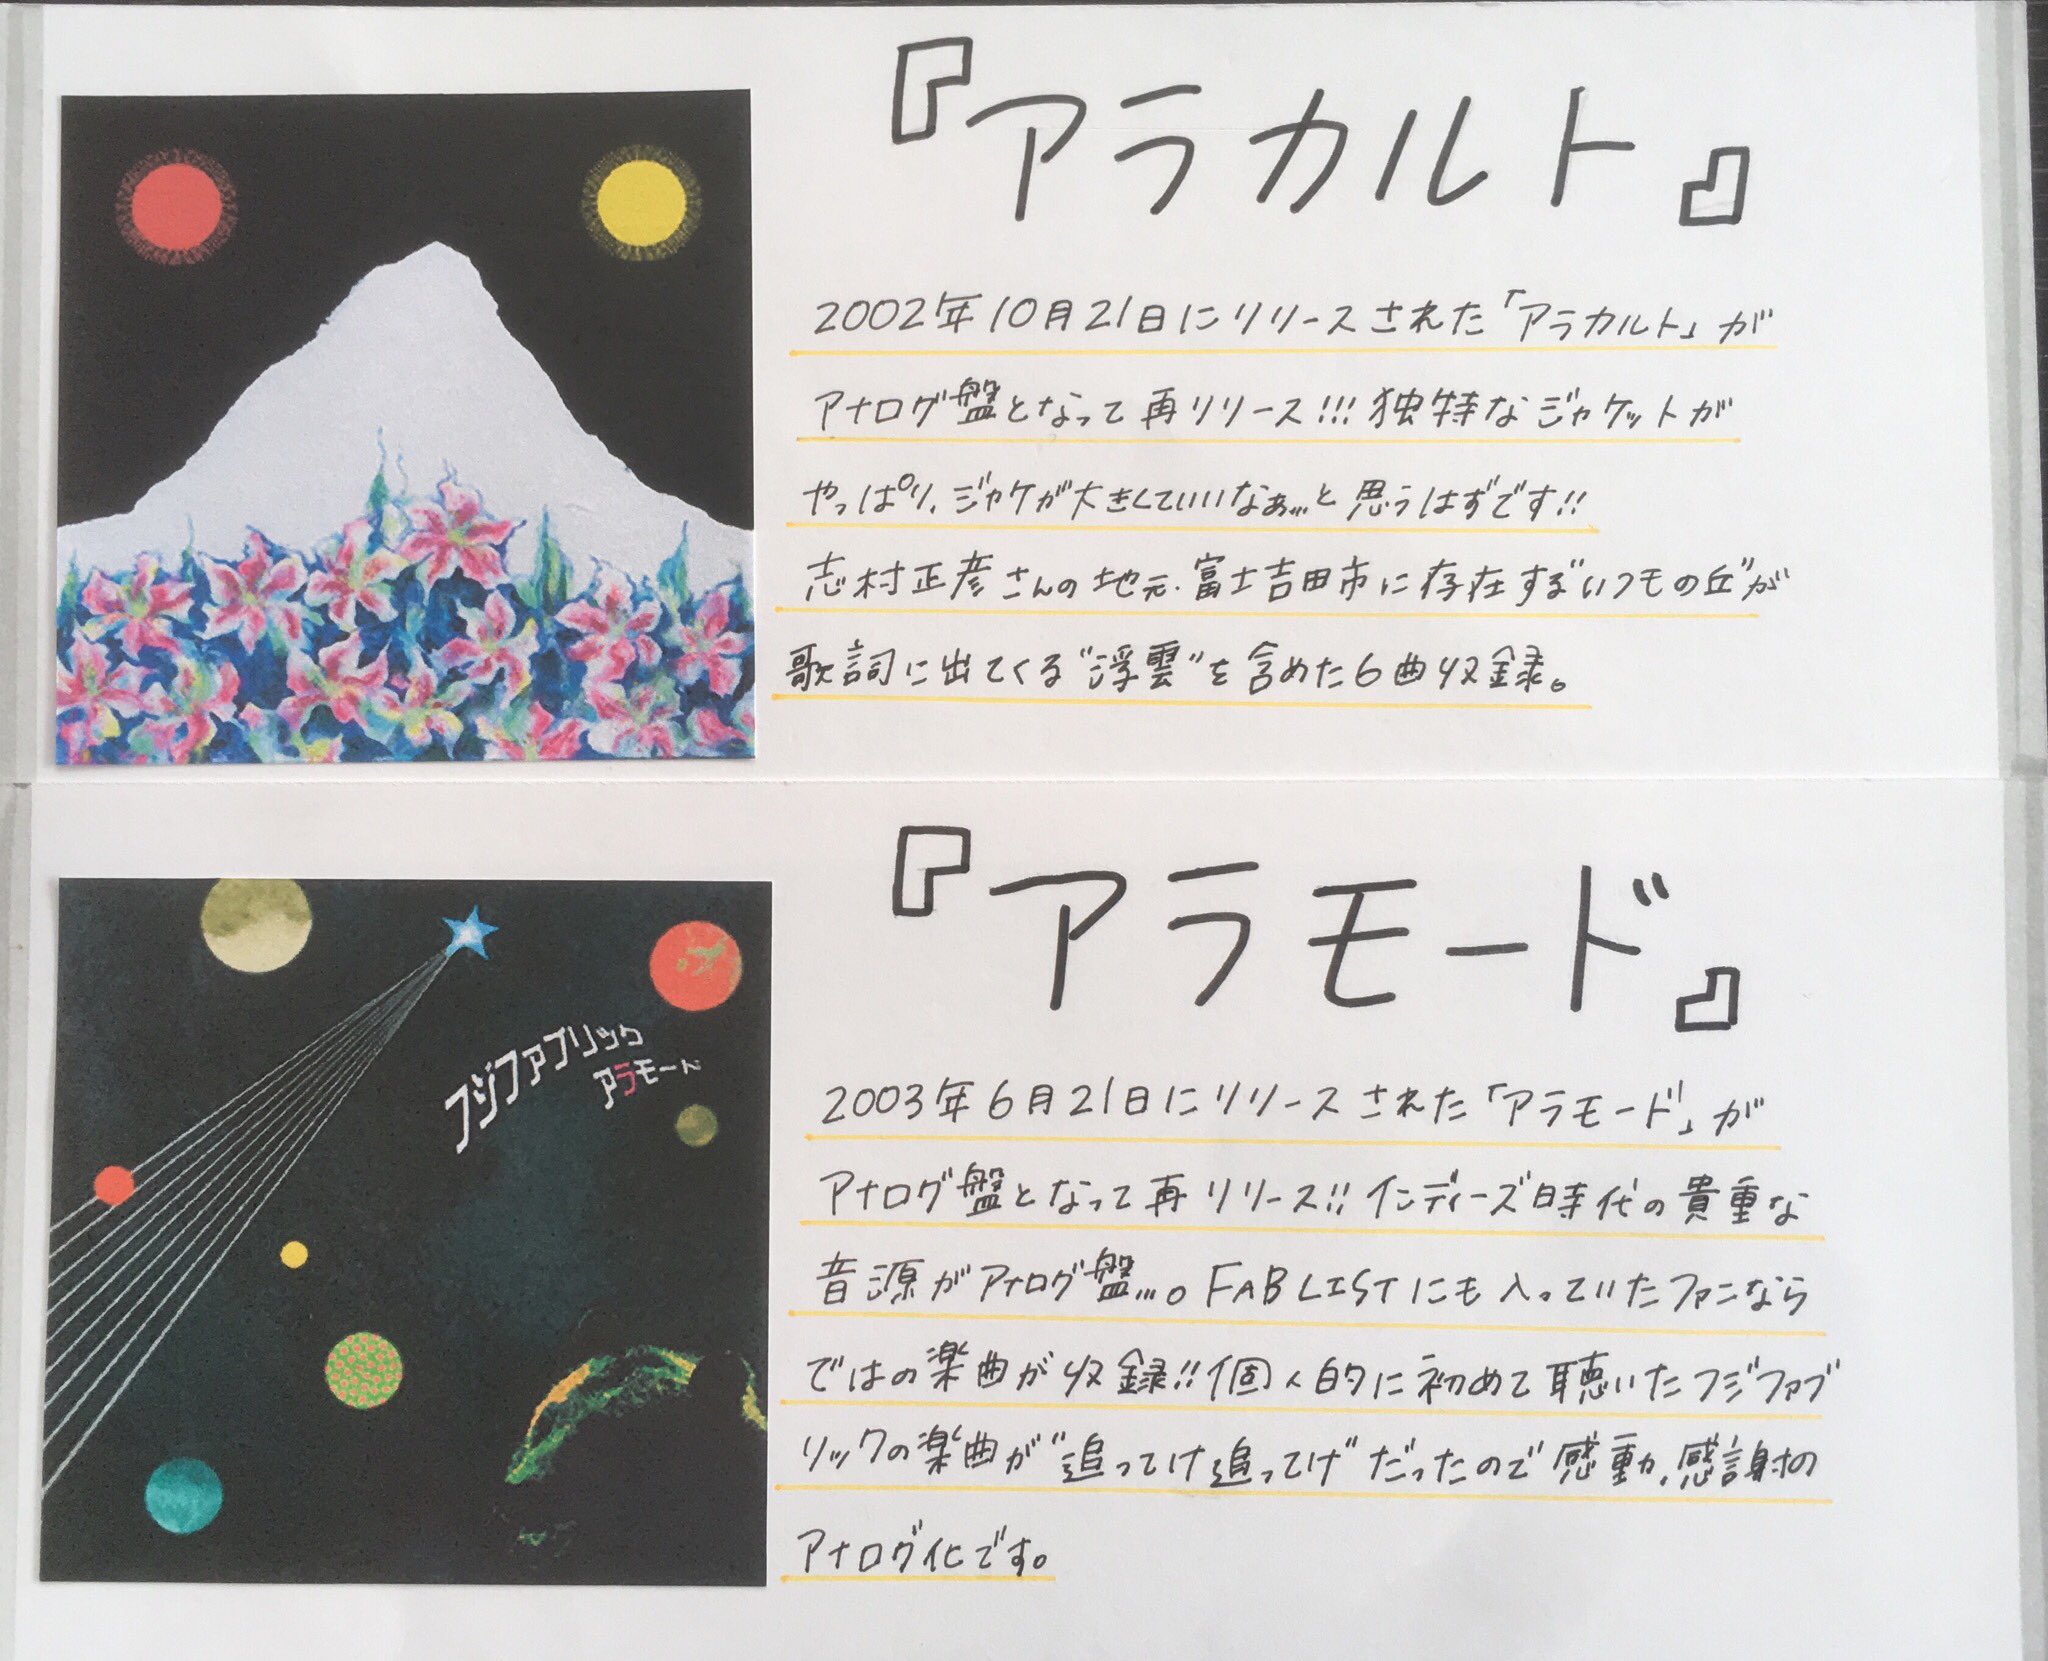 『アラカルト』
2002年10月21日にリリースされた「アラカルト」が
アナログ盤となって再リリース!!!独特なジャケットが
やっぱり、ジャケが大きくていいなぁ...と思うはずです!!
志村正彦さんの地元、富士吉田市に存在する"いつもの丘"が
歌詞に出てくる"浮雲"を含めた6曲収録。
『アラモード』
フジファブリック
アラモード
2003年6月21日にリリースされた「アラモード」が
アナログ盤となって再リリース!!インディーズ時代の貴重な
音源がアナログ盤...。FAB LISTにも入っていたファンなら
ではの楽曲が収録!!個人的に初めて聴いたフジファブ
リックの楽曲が"追ってけ追ってけ"だったので感動、感謝の
アナログ化です。